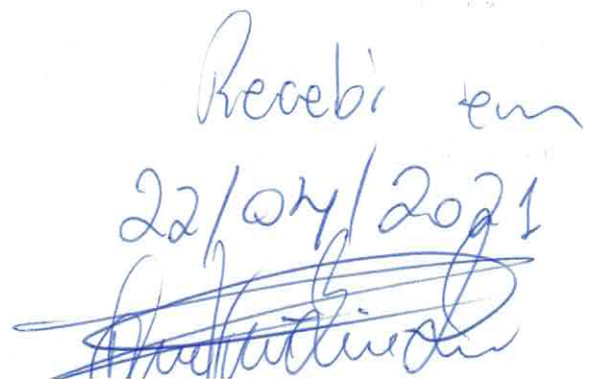 Recebi em
22/04/2021